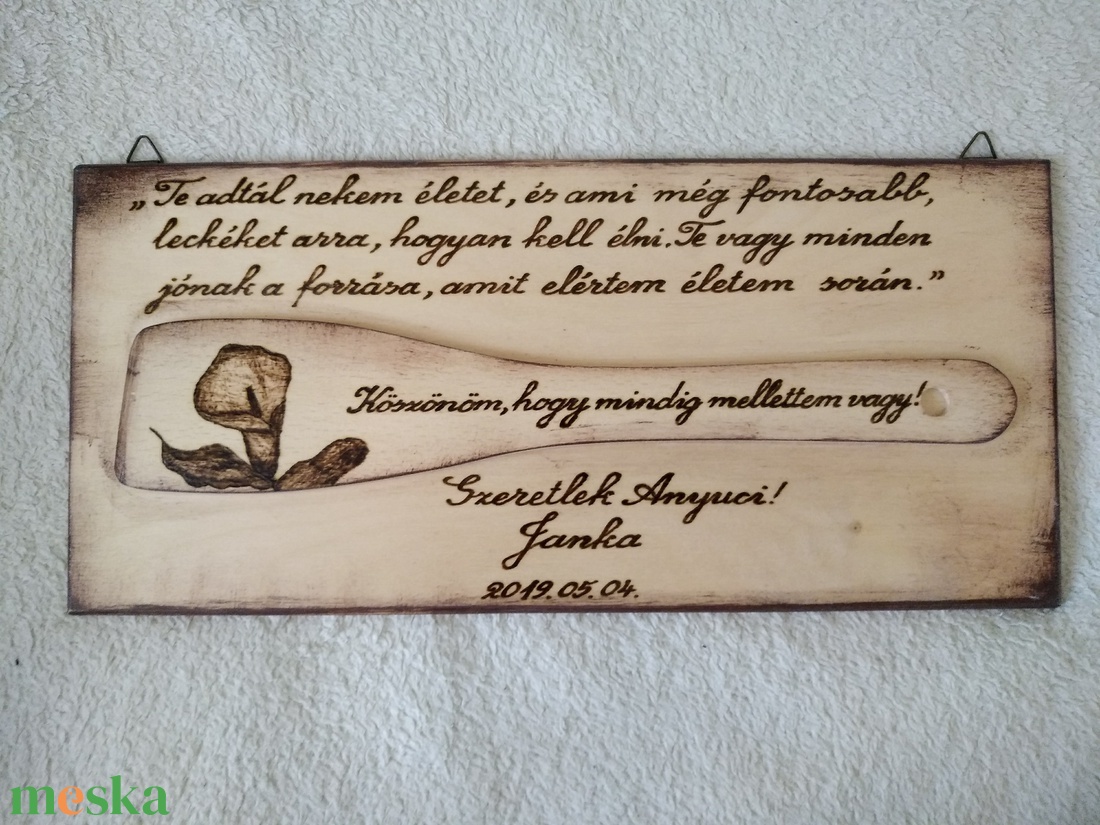 „Te adtál nekem életet, és ami még fontosabb,
leckéket arra, hogyan kell élni. Te vagy minden
jónak a forrása, amit elértem életem során.”
Köszönöm, hogy mindig mellettem vagy!
Szeretlek Anyuci!
Janka
2019.05.04.
meska